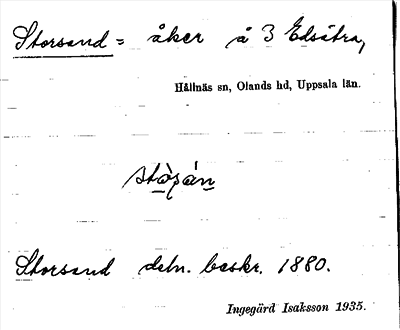 Storsand = åker å 3 Edsätra,
Hållnäs sn, Olands hd, Uppsala län.
stòsán
Storsand deln. beskr. 1880.
Ingegärd Isaksson 1935.